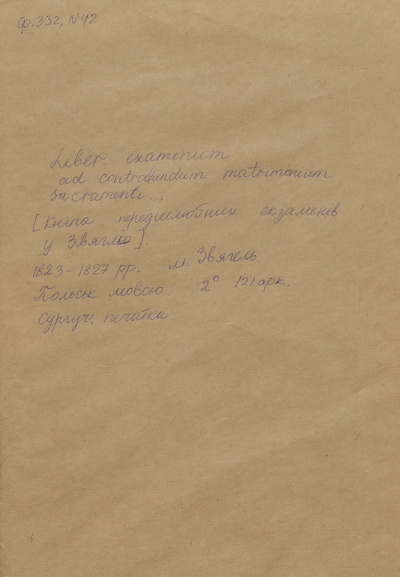 ф. 332, N 42
Liber examinum
ad contrahendum matrimonium
Sacramenti...
[Книга передшлюбних екзаменів
у Звягелі].
1823-1827 рр. м Звягель.
Польськ мовою 2° 121 арк.
Сургуч, печатка